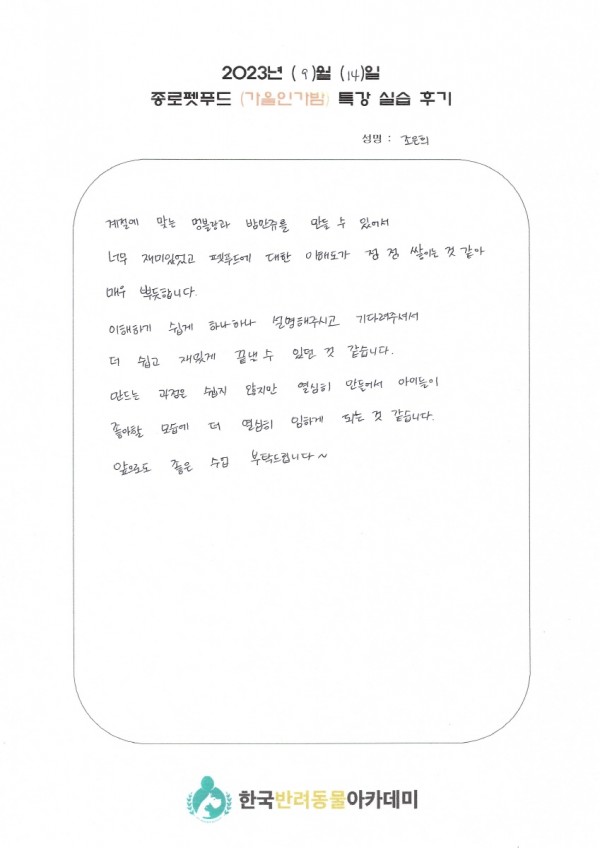 2023년 (9)월 (14)일
종로펫푸드 (가을인가밤) 특강 실습 후기
성명 : 조은희
계절에 맞는 멍불장과 밤만쥬를 만들 수 있어서
너무 재미있었고 펫푸드에 대한 이해도가 점점 쌓이는 것 같아
매우 뿌듯합니다.
이해하기 쉽게 하나하나 설명해주시고 기다려주셔서
더 쉽고 재밌게 끝낼 수 있던 것 같습니다.
만드는 과정은 쉽지 않지만 열심히 만들어서 아이들이
좋아할 모습에 더 열심히 임하게 되는 것 같습니다.
앞으로도 좋은 수업 부탁드립니다~
한국반려동물아카데미